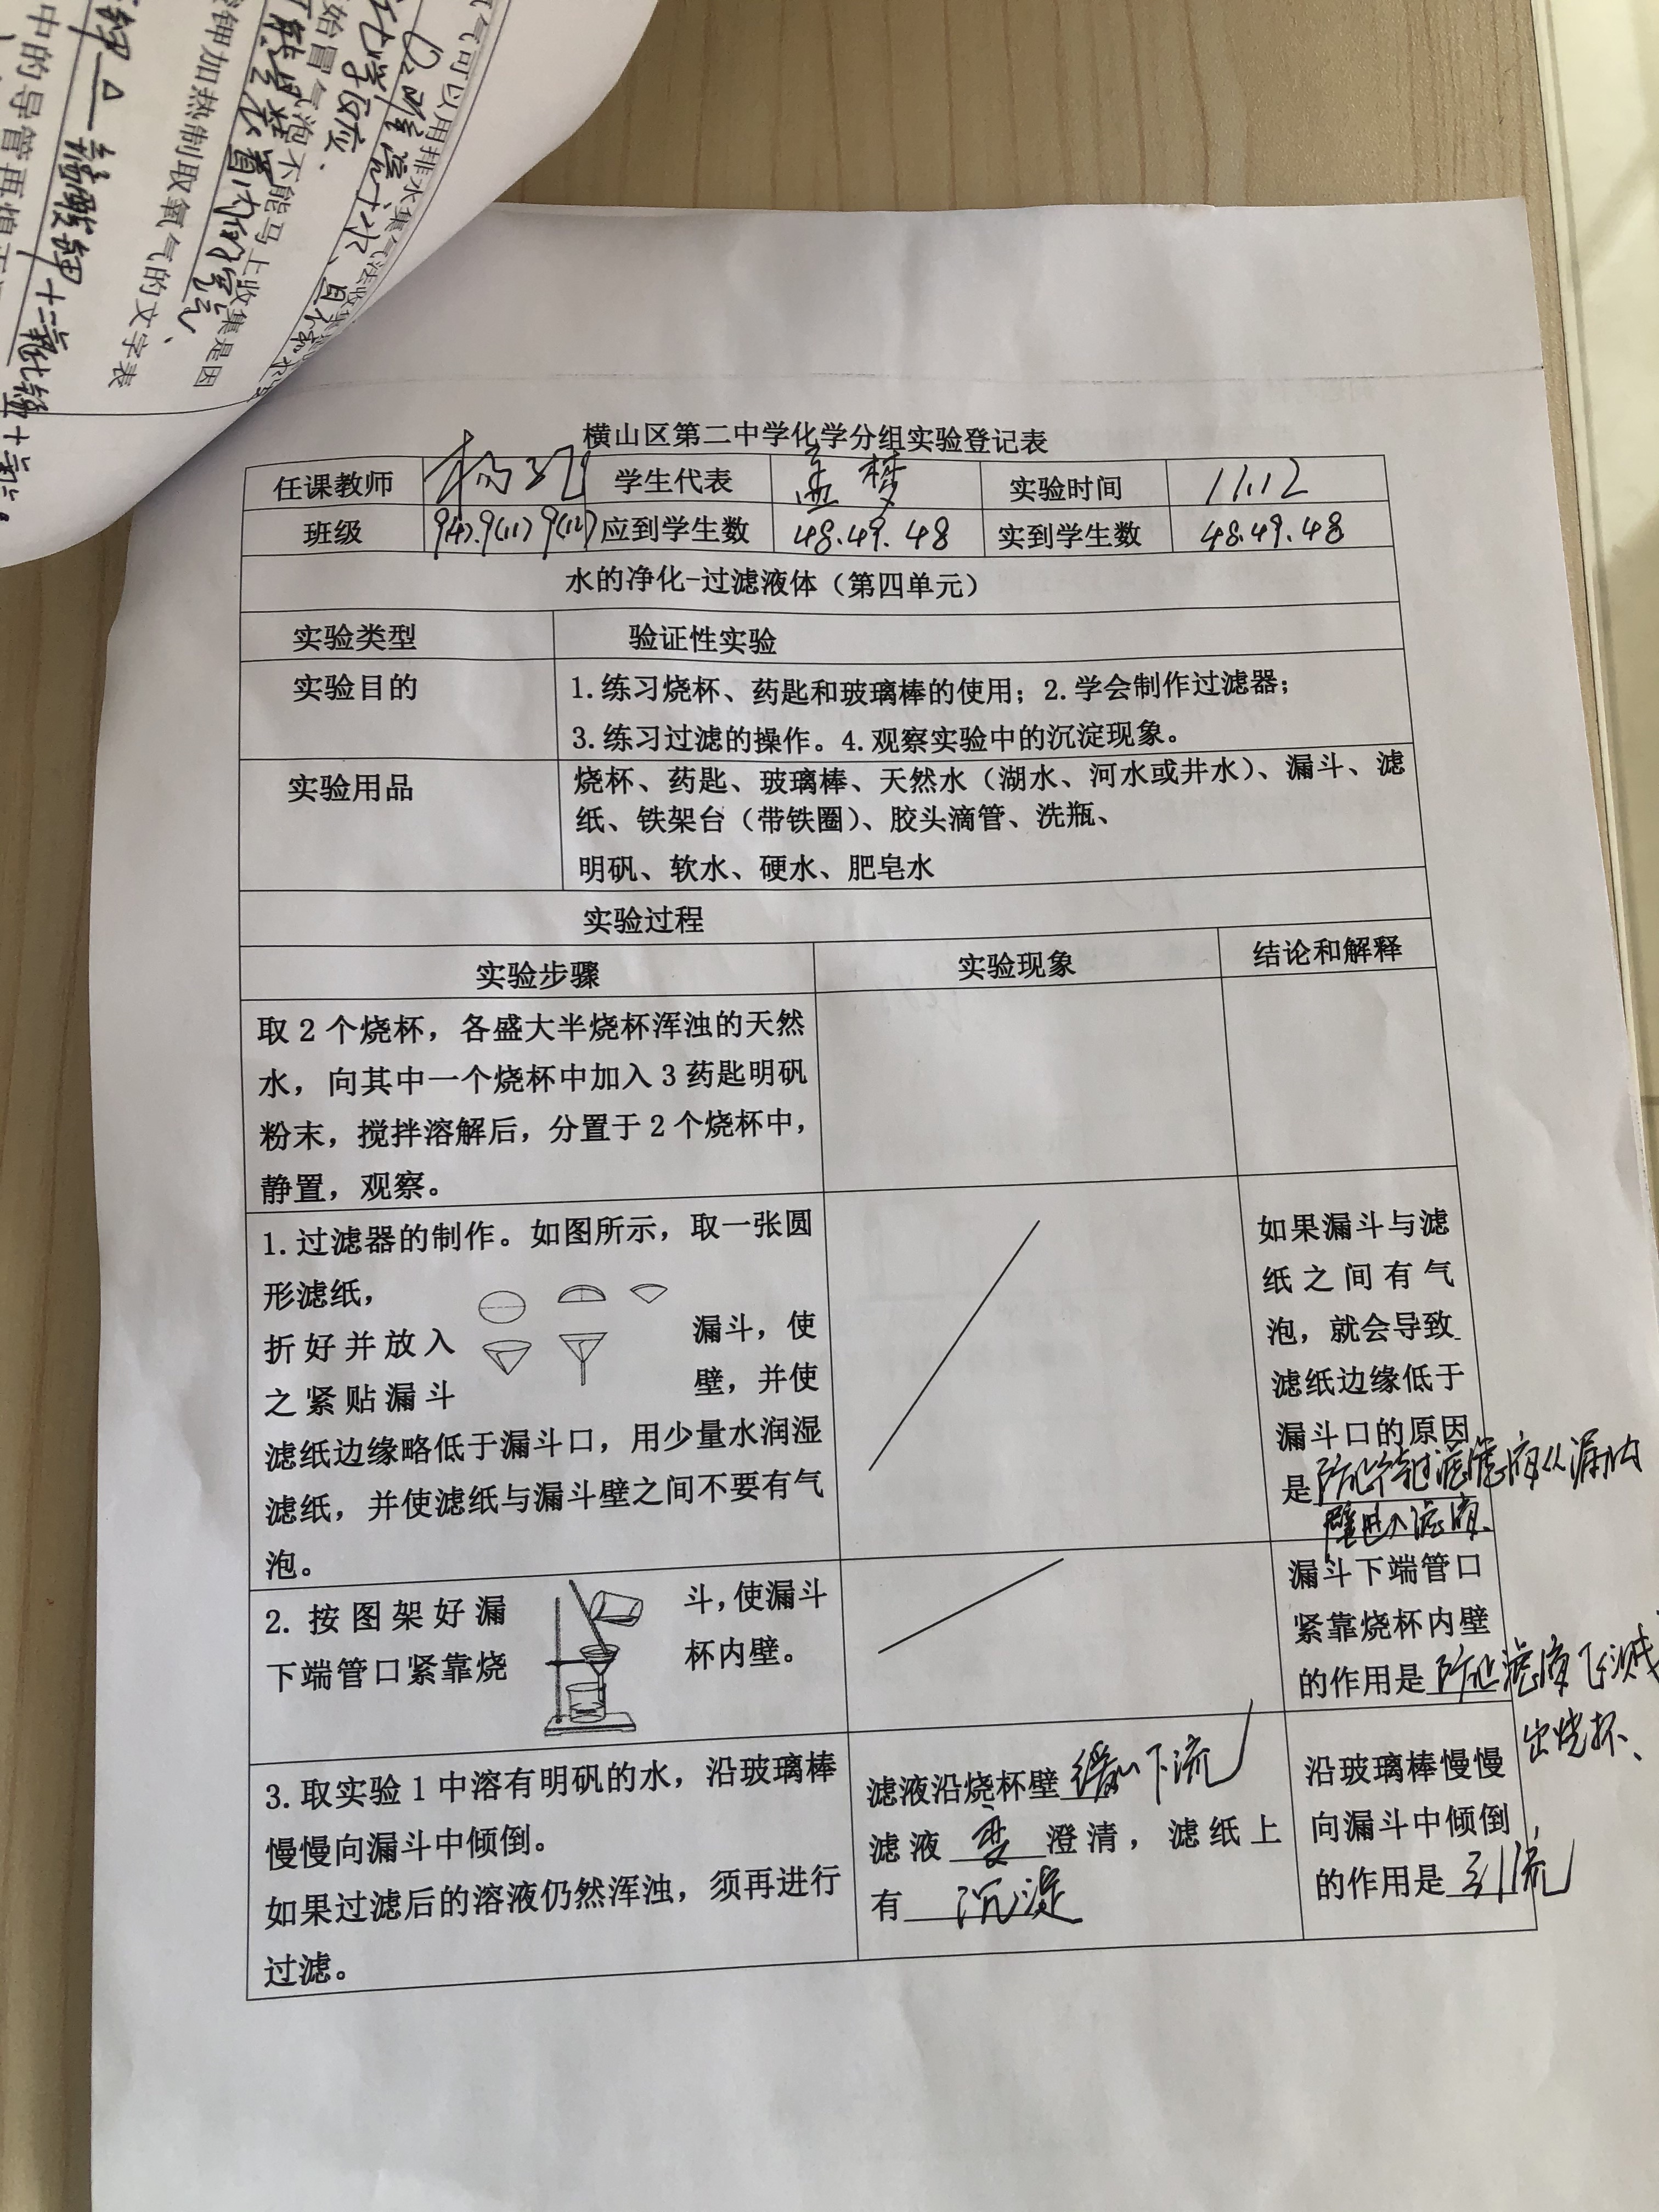 气可以用排水集气法收集
始冒气泡不能马上收集是因
可能是装置内的空气
钾加热制取氧气的文字表
氯酸钾
横山区第二中学化学分组实验登记表
任课教师 学生代表 孟梦 实验时间 11.12
班级 9(4).9(11) 9(12) 应到学生数 48.49.48 实到学生数 48.49.48
水的净化-过滤液体（第四单元）
实验类型 验证性实验
实验目的 1.练习烧杯、药匙和玻璃棒的使用；2.学会制作过滤器；
3.练习过滤的操作。4.观察实验中的沉淀现象。
实验用品 烧杯、药匙、玻璃棒、天然水（湖水、河水或井水）、漏斗、滤
纸、铁架台（带铁圈）、胶头滴管、洗瓶、
明矾、软水、硬水、肥皂水
实验过程
实验步骤 实验现象 结论和解释
取2个烧杯，各盛大半烧杯浑浊的天然
水，向其中一个烧杯中加入3药匙明矾
粉末，搅拌溶解后，分置于2个烧杯中，
静置，观察。
1.过滤器的制作。如图所示，取一张圆
形滤纸，
折好并放入 漏斗，使
之紧贴漏斗 壁，并使
滤纸边缘略低于漏斗口，用少量水润湿
滤纸，并使滤纸与漏斗壁之间不要有气
泡。
如果漏斗与滤
纸之间有气
泡，就会导致
滤纸边缘低于
漏斗口的原因
是防止待过滤液从漏内
壁进入滤液
2.按图架好漏 斗，使漏斗
下端管口紧靠烧 杯内壁。
漏斗下端管口
紧靠烧杯内壁
的作用是防止滤液飞溅
出烧杯、
3.取实验1中溶有明矾的水，沿玻璃棒
慢慢向漏斗中倾倒。
如果过滤后的溶液仍然浑浊，须再进行
过滤。
滤液沿烧杯壁缓缓下流
滤液变澄清，滤纸上
有沉淀
沿玻璃棒慢慢
向漏斗中倾倒
的作用是引流